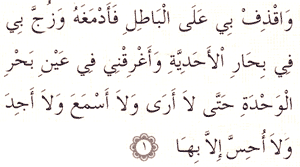 وَاقْذِفْ بِي عَلَى الْبَاطِلِ فَأَدْمَغَهُ وَزُجَّ بِي
فِي بِحَارِ الْأَحَدِيَّةِ وَأَغْرِقْنِي فِي عَيْنِ بَحْرِ
الْوَحْدَةِ حَتَّى لاَ أَرَى وَلاَ أَسْمَعَ وَلاَ أَجِدَ
وَلاَ أُحِسَّ إِلاَّ بِهَا ١